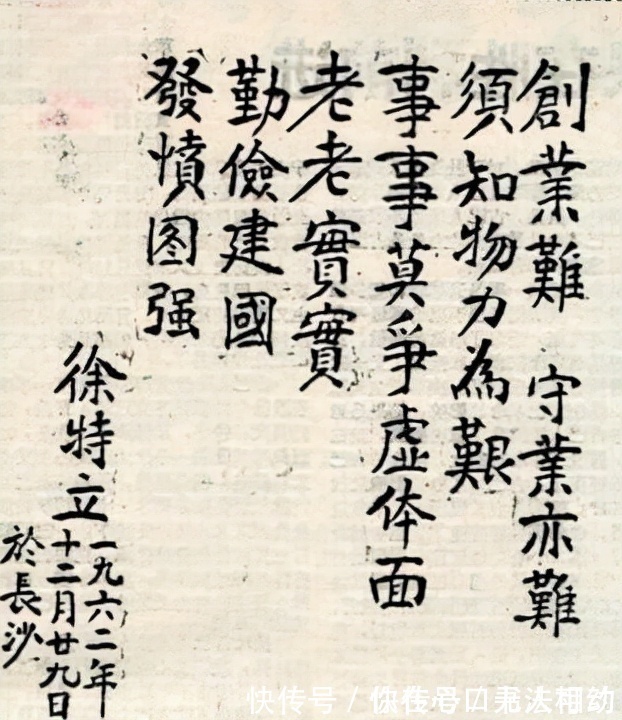 創業難 守業亦難
須知物力為艱
事事莫爭虛体面
老老實實
勤儉建國
發憤图强
徐特立
一九六二年
十二月廿九日
於長沙
快传号 /